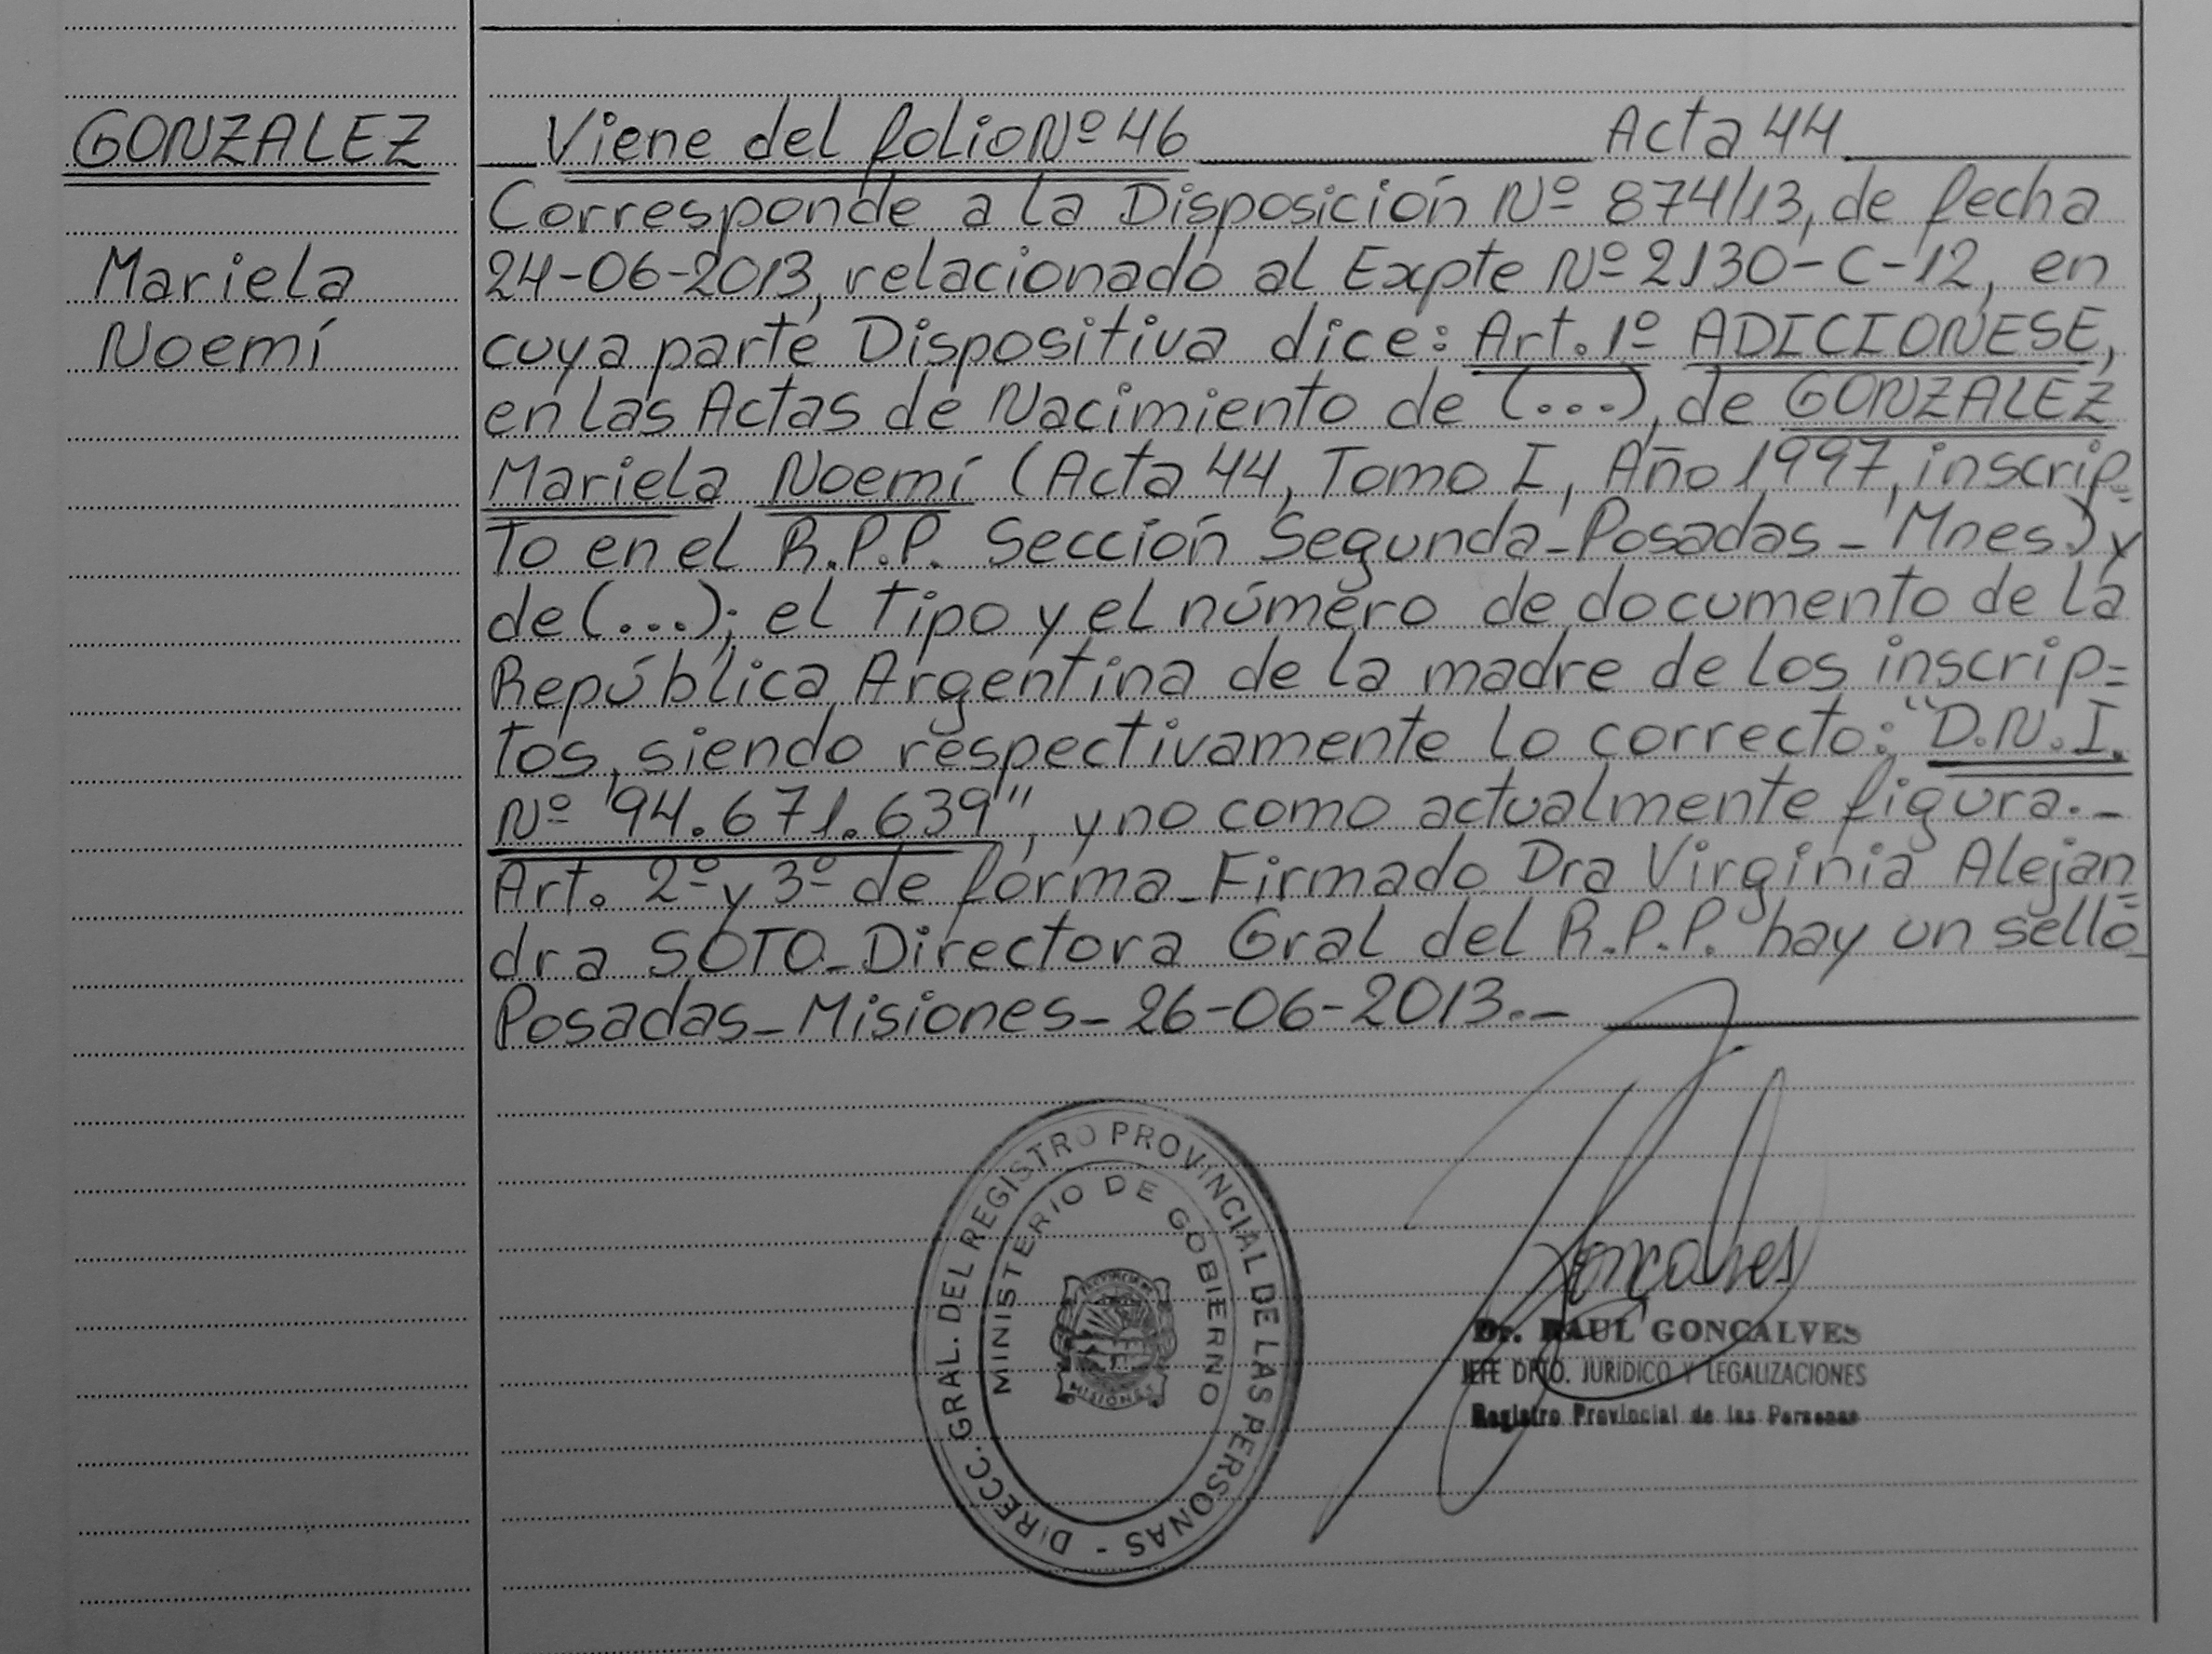 GONZALEZ
Mariela
Noemí
Viene del folio Nº 46 Acta 44
Corresponde a la Disposición Nº 874/13, de fecha
24-06-2013, relacionado al Expte Nº 2130-C-12, en
cuya parte Dispositiva dice: Art. 1º ADICIONESE,
en las Actas de Nacimiento de (...), de GONZALEZ
Mariela Noemí (Acta 44, Tomo I, Año 1997, inscrip=
to en el R.P.P. Sección Segunda-Posadas-Mnes.) y
de (...); el tipo y el número de documento de la
República Argentina de la madre de los inscrip=
tos, siendo respectivamente lo correcto: "D.N.I.
Nº 94.671.639", y no como actualmente figura.-
Art. 2º y 3º de forma-Firmado Dra Virginia Alejan=
dra SOTO-Directora Gral del R.P.P. hay un sello-
Posadas-Misiones-26-06-2013.-
DIRECC. GRAL. DEL REGISTRO PROVINCIAL DE LAS PERSONAS -
MINISTERIO DE GOBIERNO
PROVINCIA DE
MISIONES
Goncalves
Dr. RAUL GONCALVES
JEFE DPTO. JURIDICO Y LEGALIZACIONES
Registro Provincial de las Personas